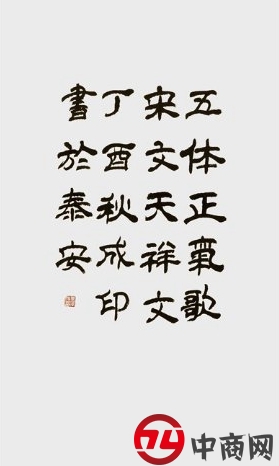 五体正氣歌
宋文天祥文
丁酉秋成印
書於泰安
中商网